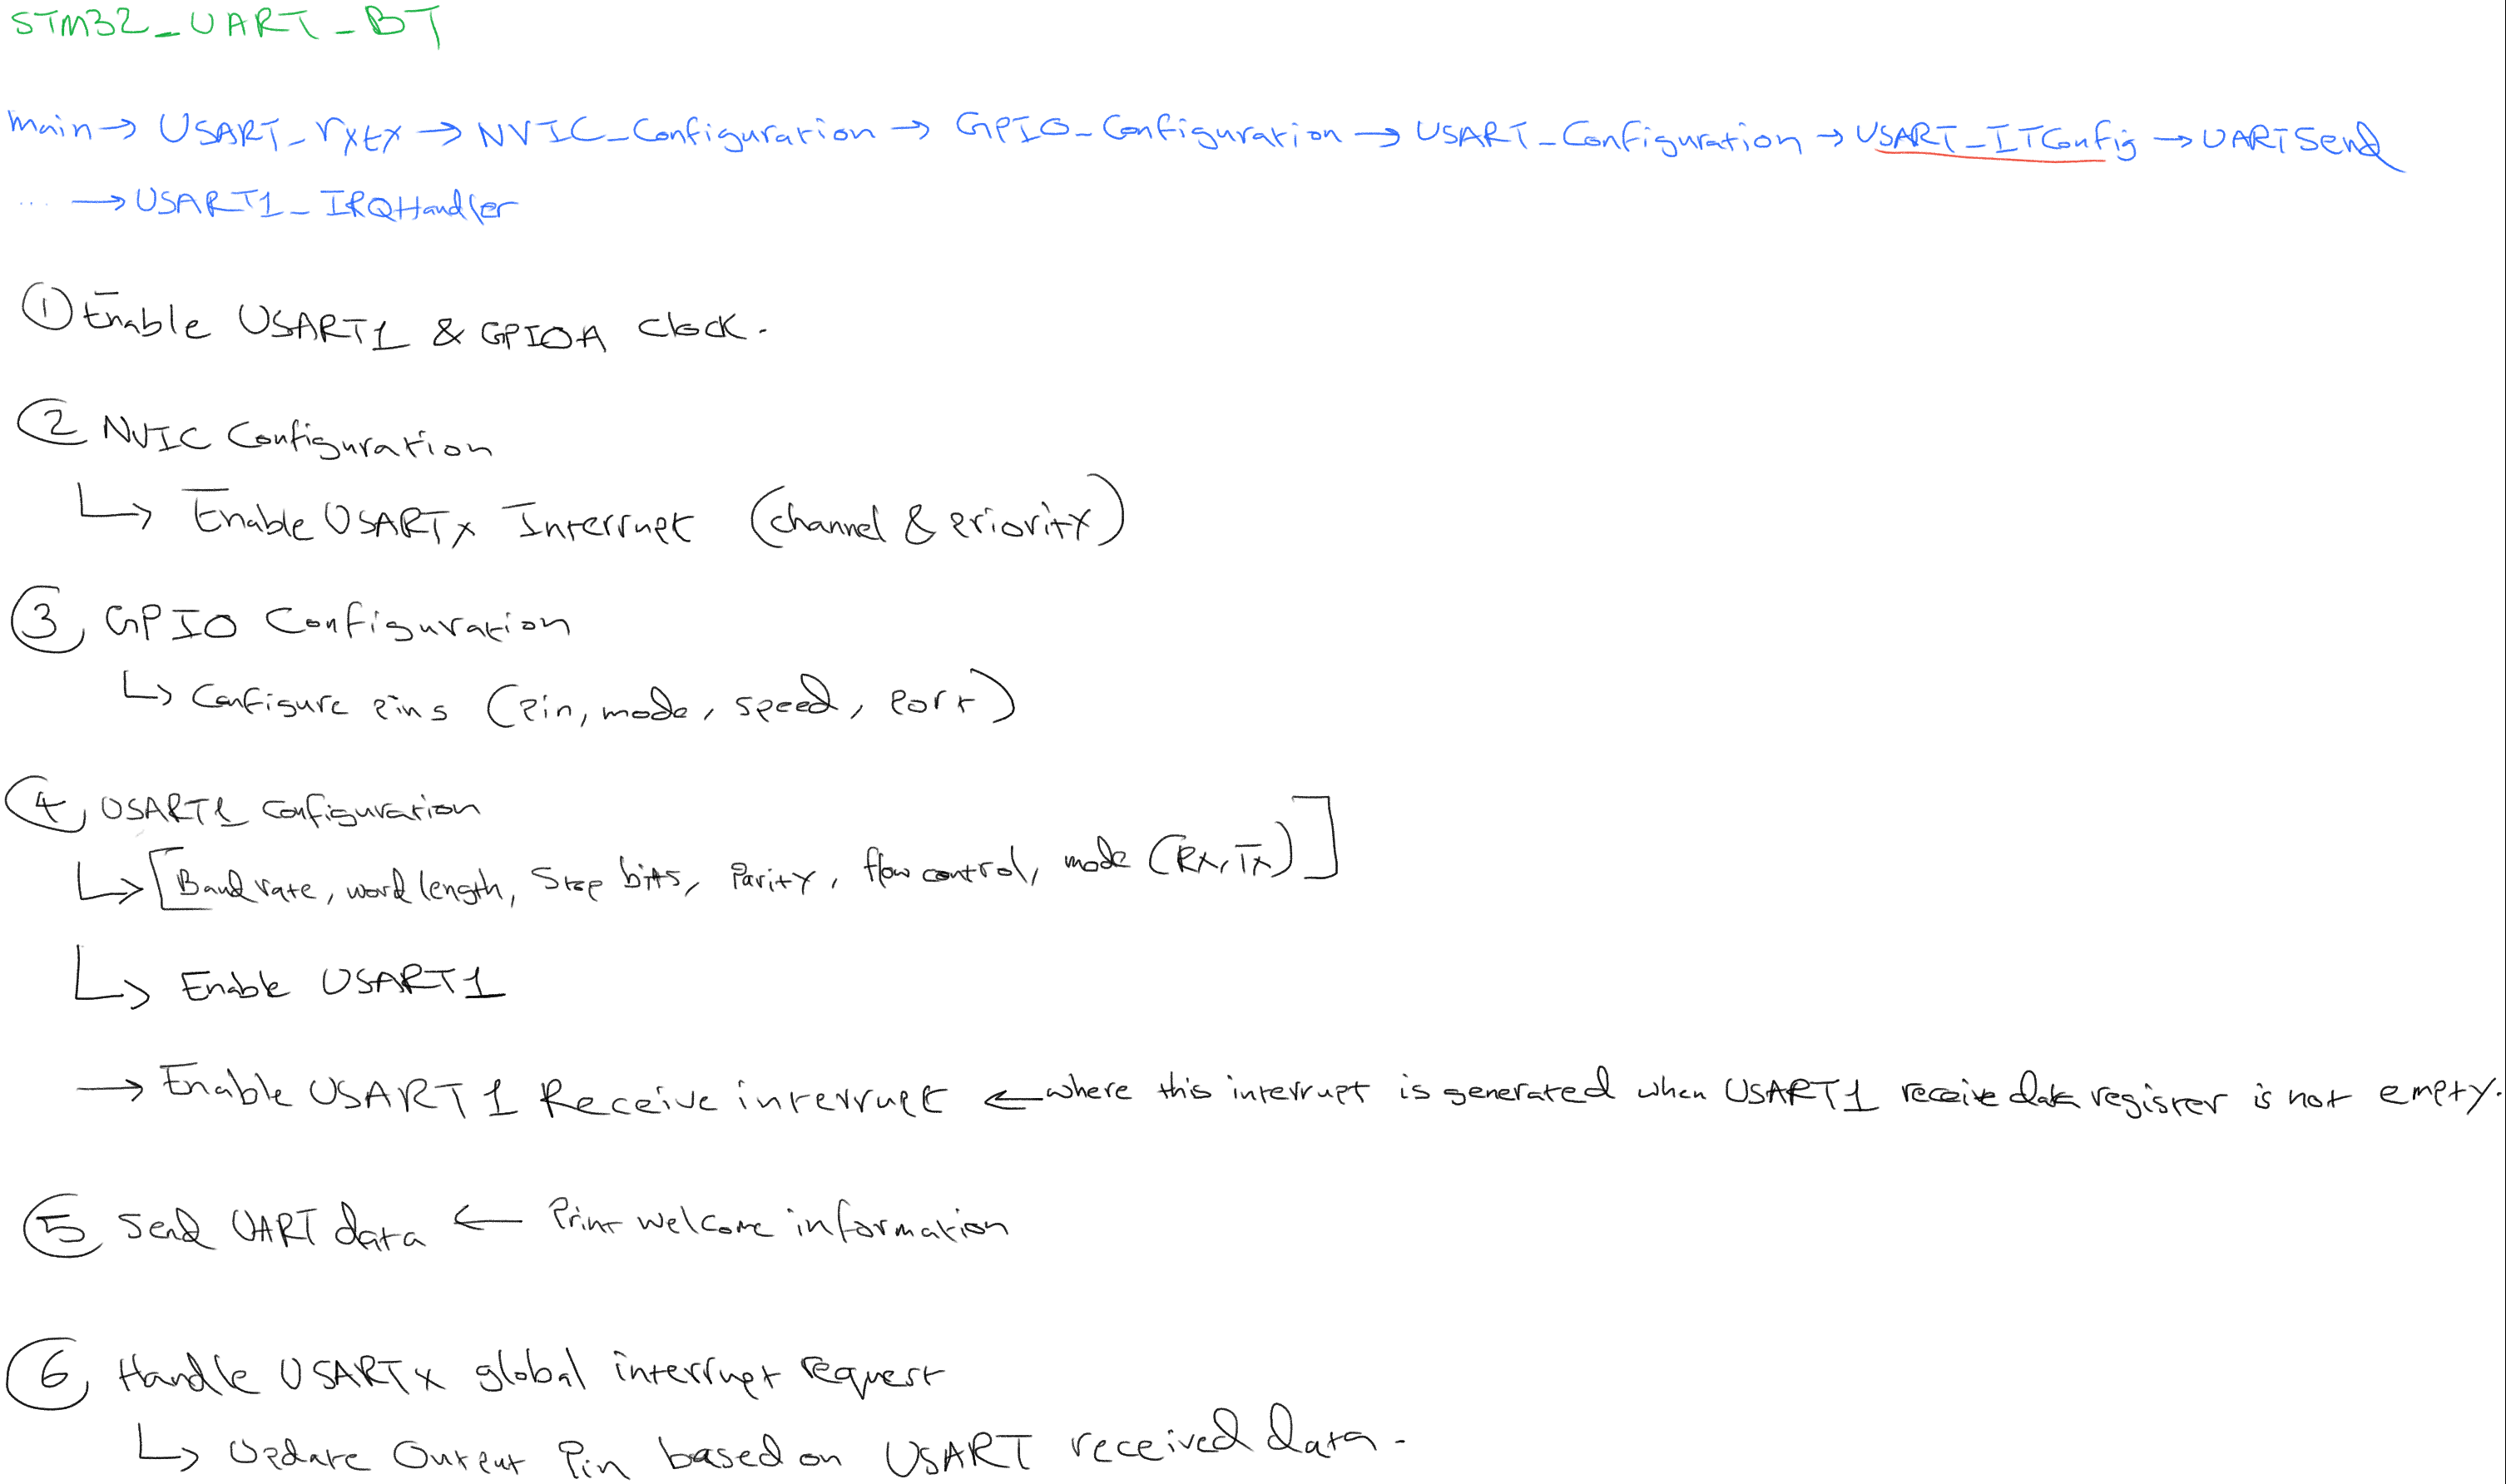 STM32_UART_BT
main → USART_rxtx → NVIC_Configuration → GPIO_Configuration → USART_Configuration → USART_ITConfig → UARTSend
... → USART1_IRQHandler
① Enable USART1 & GPIOA clock.
② NVIC Configuration
↳ Enable USARTx Interrupt (channel & priority)
③ GPIO Configuration
↳ Configure pins (pin, mode, speed, port)
④ USART1 configuration
↳ [Baud rate, word length, Stop bits, Parity, flow control, mode (RX, TX)]
↳ Enable USART1
→ Enable USART1 Receive interrupt ← where this interrupt is generated when USART1 receive data register is not empty.
⑤ Send UART data ← Print welcome information
⑥ Handle USARTx global interrupt request
↳ Update Output Pin based on USART received data.